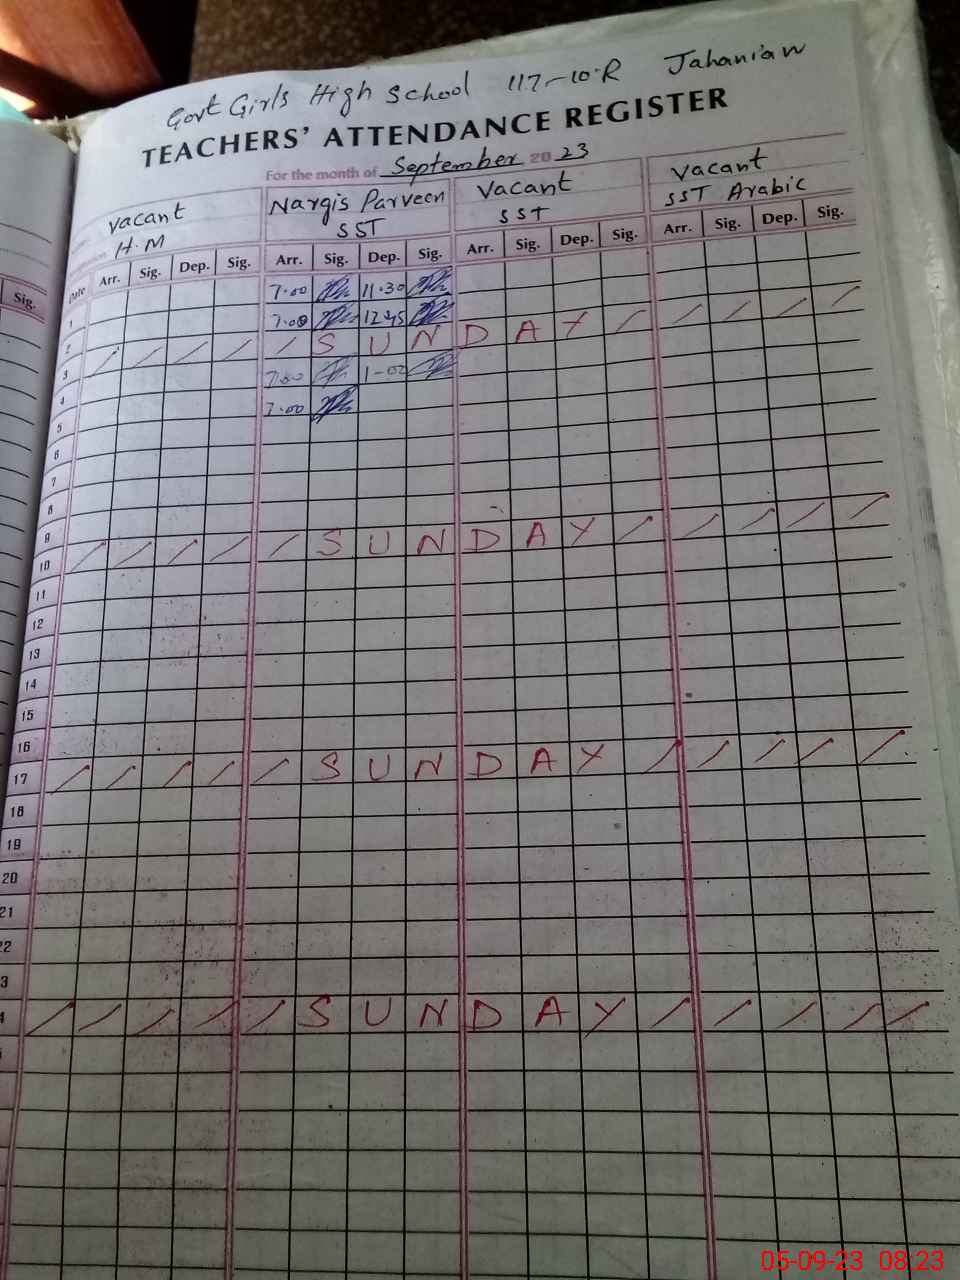 Govt Girls High School 117-10-R Jahanian
TEACHERS' ATTENDANCE REGISTER
For the month of September 20 23
Vacant Nargis Parveen Vacant Vacant
H.M SST SST SST Arabic
Sig. Date Arr. Sig. Dep. Sig. Arr. Sig. Dep. Sig. Arr. Sig. Dep. Sig. Arr. Sig. Dep. Sig.
1 7.00 11.30
2 7.00 12.45
3 SUNDAY
4 7.00 1-00
5 7.00
6
7
8
9
10 SUNDAY
11
12
13
14
15
16
17 SUNDAY
18
19
20
21
22
3
4 SUNDAY
05-09-23 08:23